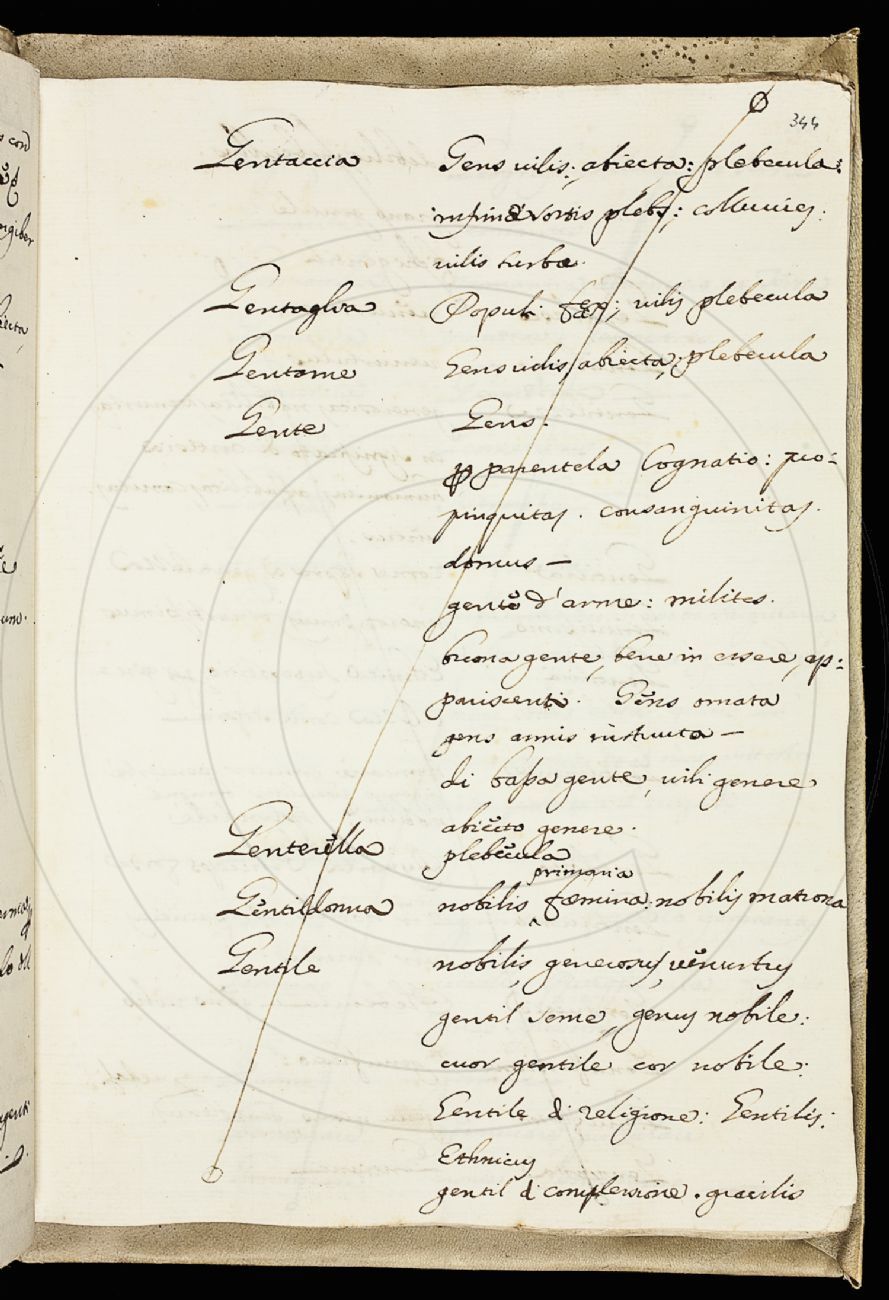 344
Gentaccia Gens uilis; abiecta: plebecula:
infimæ sortis plebs; colluuies:
uilis turba.
Gentaglia Populi fæx; uilis plebecula
Gentame Gens uilis, abiecta, plebecula
Gente Gens.
parentela Cognatio: pro=
pinquitas. consanguinitas.
domus —
gente d'arme: milites.
buona gente, bene in essere, ap=
pariscenti. Gens ornata
gens armis instructa —
di bassa gente, uili genere
abiecto genere.
Genterella plebecula
primaria
Gentildonna nobilis fæmina: nobilis matrona
Gentile nobilis, generosus, uenustus
gentil seme, genus nobile:
cuor gentile cor nobile:
Gentile di religione: Gentilis:
Ethnicus
gentil di complessione. gracilis